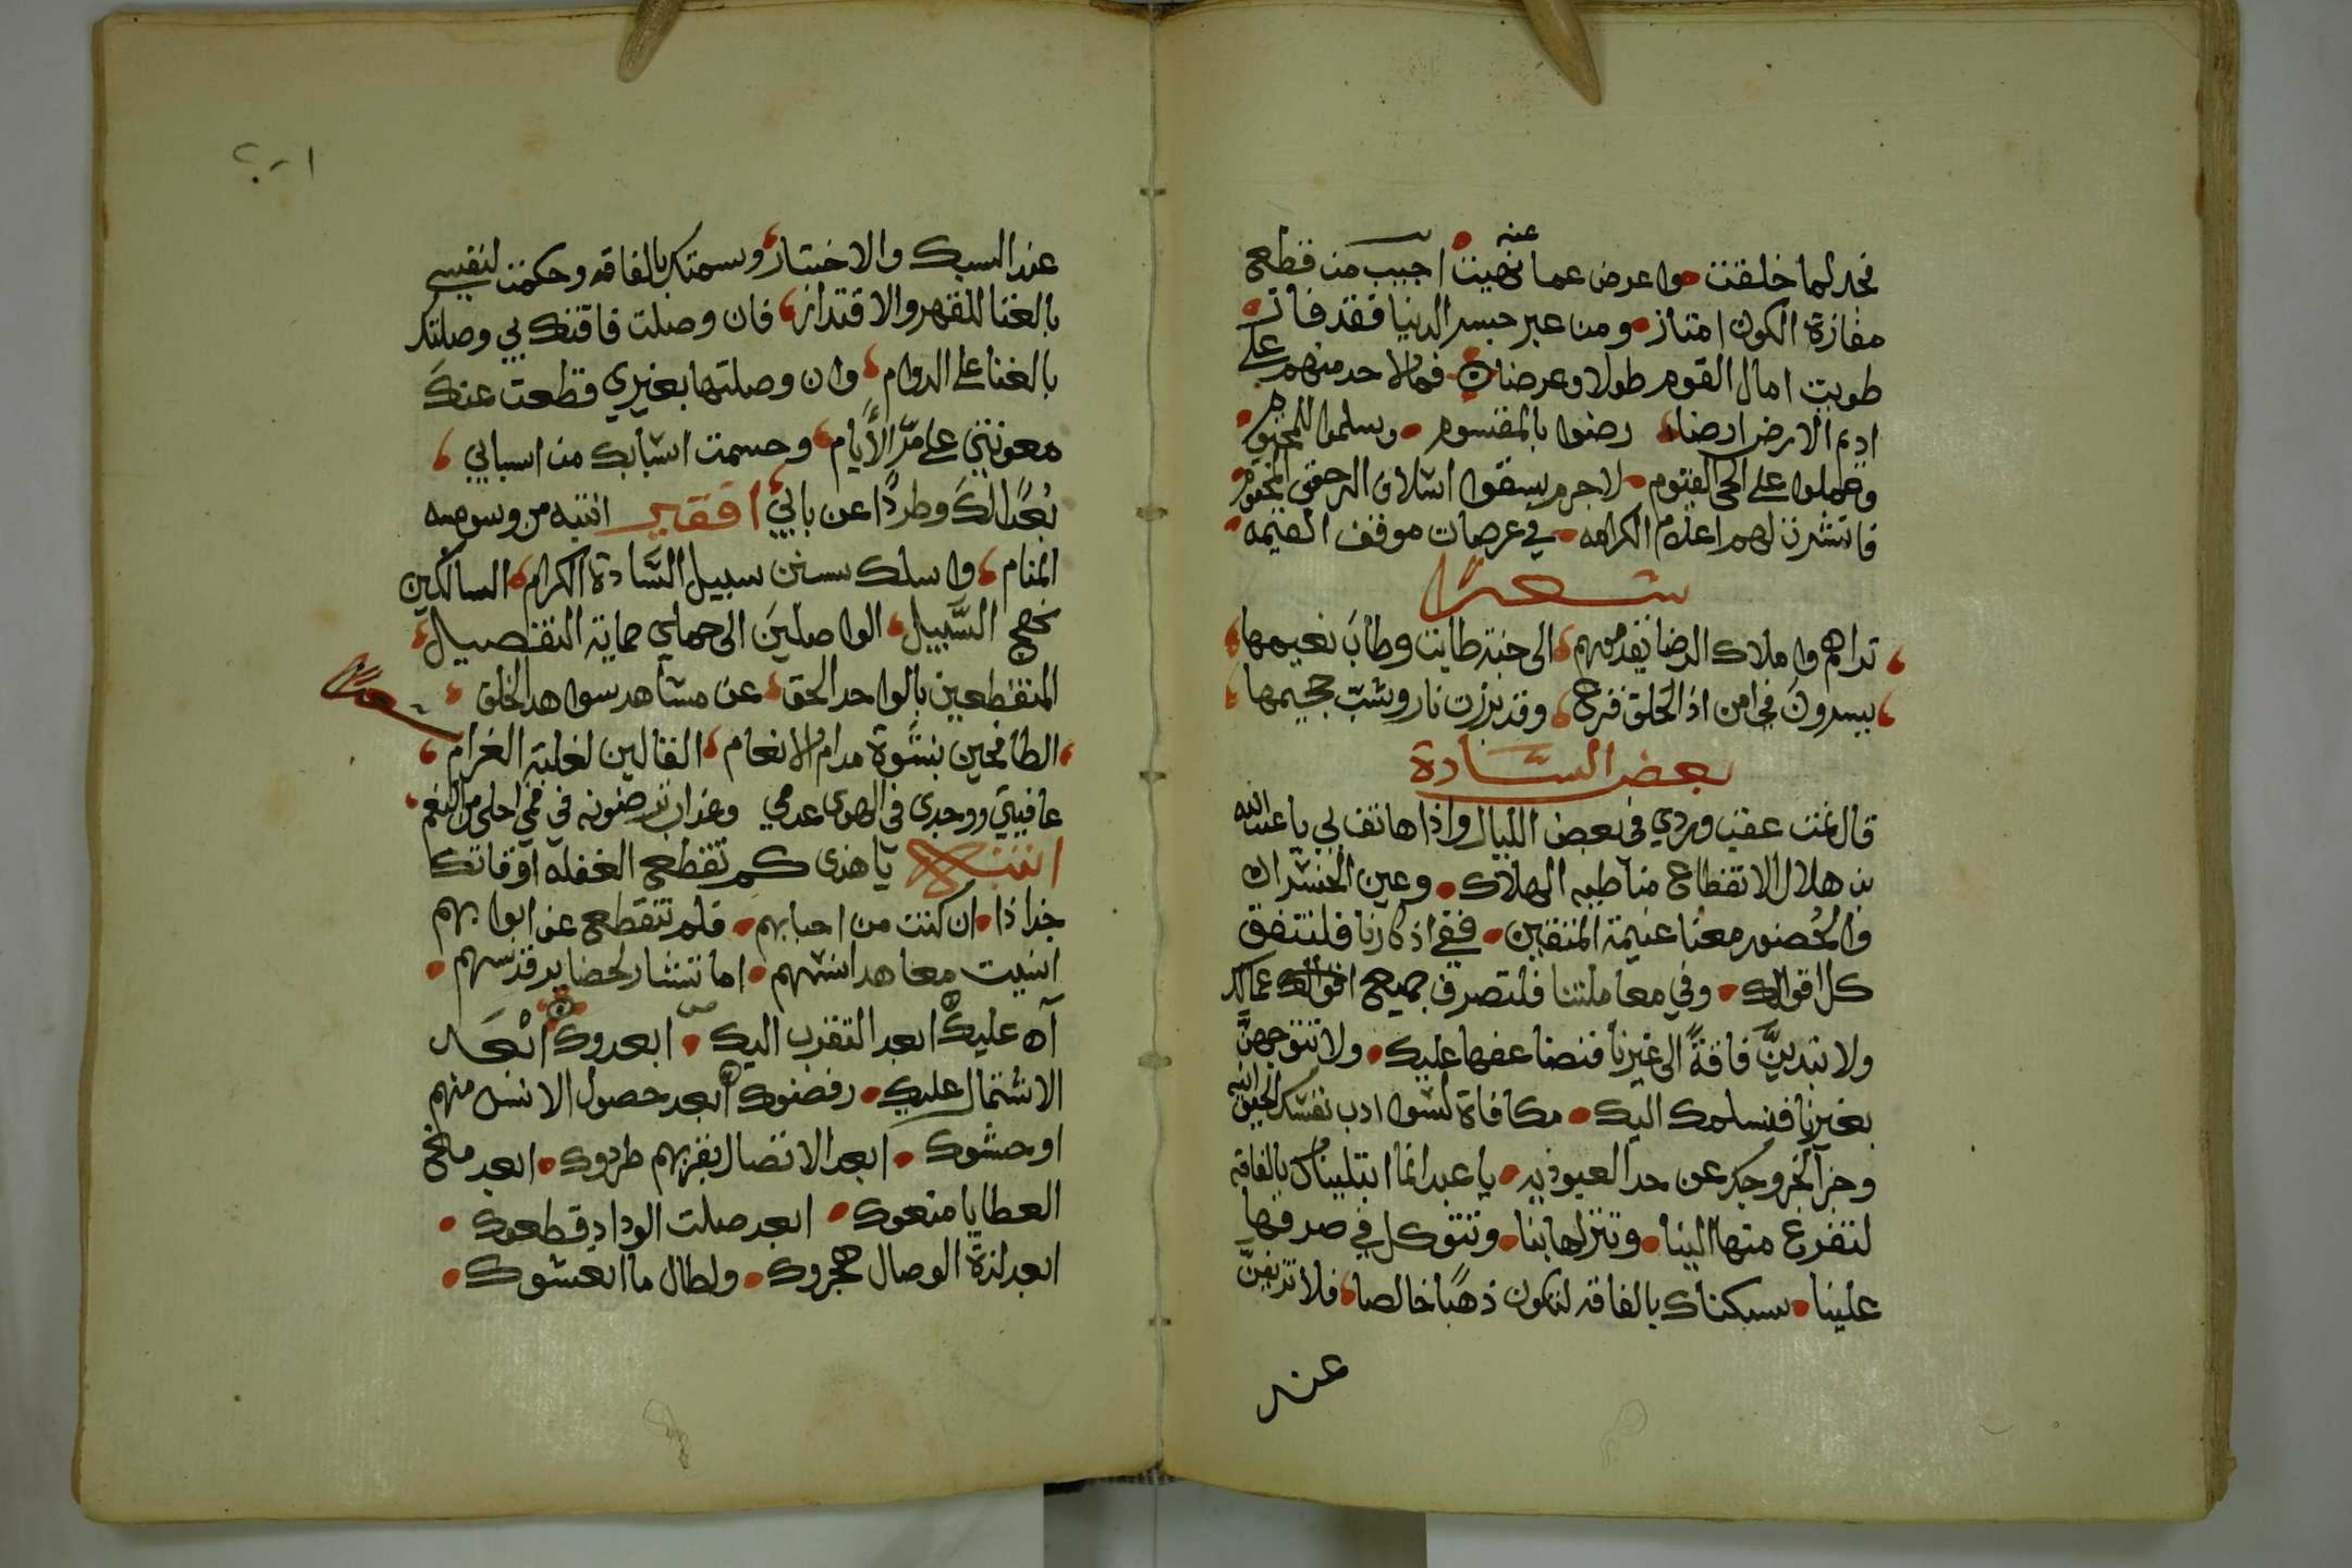 فجد لما خلقت واعرض عما نهيت عنه اجيب من قطع
مفازة الكون امتاز ومن عبر جسر الدنيا فقد فاز
طويت امال القوم طولا وعرضا فما لاحد منهم على
اديم الارض ارضا رضوا بالمقسوم وسلموا للمحتوم
وعملوا على الحي القيوم لا جرم سقوا اسلاف الرحيق المختوم
فانتشرت لهم اعلام الكرامه في عرصات موقف القيمه
شعرا
تراهم واملاك الرضا يقدمهم الى جنة طابت وطاب نعيمها
يسيرون في امن اذ الخلق فزع وقد برزت نار وشب جحيمها
بعض السادة
قال نمت عقب وردي في بعض الليال واذا هاتف بي يا عبد الله
بن هلال الانقطاع منا طيه الهلاك وعين الخسران
والحضور معنا غنيمة المتقين ففي اذكارنا فلتنفق
كل اقوالك وفي معاملتنا فلتصرف جميع اعمالك
ولا تبدين فاقة الى غيرنا فنضاعفها عليك ولا تتوجهن
بغيرنا فنسلمك اليك مكافاة لسوا ادب نفسك
وجزآ لخروجك عن حد العبوديه يا عبد انما ابتليناك بالفاقه
لتفزع منها الينا وتنزلها بنا وتتوكل في صرفها
علينا سبكناك بالفاقه لتكون ذهبا خالصا فلا تزيفن
عند
عند السبك والاختبار وسمتك بالفاقه وحكمت لنفسي
بالغنا للقهر والاقتدار فان وصلت فاقتك بي وصلتك
بالغنا على الدوام وان وصلتها بغيري قطعت عنك
معونتي على مر الأيام وحسمت اسبابك من اسبابي
بعدا لك وطردا عن بابي افقير انتبه من وسومه
المنام واسلك سنن سبيل السادة الكرام السالكين
نهج السبيل الواصلين الى حماية التفصيل
المنقطعين بالواحد الحق عن مشاهد سواهد الخلق
الطافحين بنشوة مدام الانعام القالين لغلبة الغرام
عافيتي ووجدى في الهوى عدمي وعذاب ترضونه في فمي احلى من النعم
انتبه يا هذى كم تقطع الغفله اوقاتك
جذاذا ان كنت من احبابهم فلم تنقطع عن ابوابهم
انسيت معاهد انسهم اما تشتاق لحضاير قدسهم
آه عليك ابعد التقرب اليك ابعدوك ابعد
الاشتمال عليك رفضوك ابعد حصول الانس منهم
اوحشوك ابعد الاتصال بقربهم طردوك ابعد منح
العطايا منعوك ابعد صلت الوداد قطعوك
ابعد لذة الوصال هجروك ولطال ما انعشوك